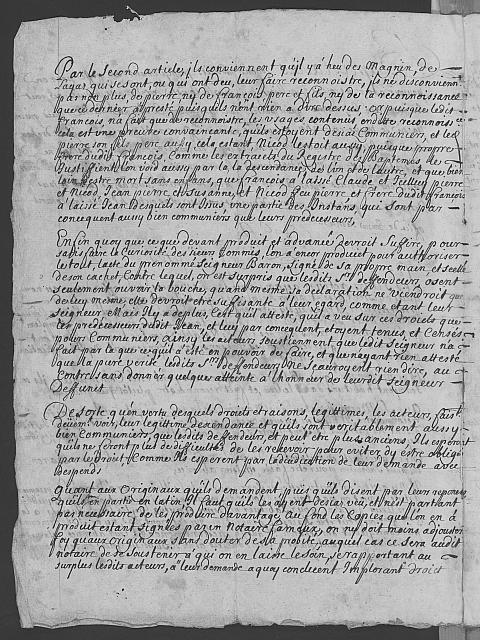 Par le Second article, ils conviennent qu'il y a heu des Magnin, de
Payas qui se sont, ou qui ont deu, leur faire reconnoistre, ils ne disconviennent
pas non plus, de pierre, ny de françois, pere et fils, ny de la reconnoissance
que ce dernier a presté puisqu'ils n'ont rien a dire dessus, or puisque ledit
François, n'a fait que de reconnoistre, les usages, contenus, en dite reconnoiss.
cela est une preuve convaincante, qu'ils estoyent desia Communiers, et led.
pierre son fils perc aussy, cela estant, Nicod l'estoit aussy, puisque propre
frere dudit françois, Comme les extraicts du Registre des Baptemes le
Justiffient, l'on voit aussy par là, la descendance, de l'un et de l'autre, et que bien
loin d'estre mort sans enfans, que françois a laissé Claude, et
et Nicod, Jean pierre, et Susanne, et Nicod feu pierre et frere dudit françois
a laissé Jean desquels sont Issus une partie des Instans, que sont par
consequent aussy bien communiers que leurs predecesseurs.
Enfin quoy que ce que devant produit et advancé devroit Suffire, pour
satisfaire la Curiosité des sieurs Commis, l'on a encor produit pour authoriser
le tout, l'acte du prenommé Seigneur Baron, Signé de sa propre main, et scellé
de son cachet, Contre lequel, on est surpris que lesdits Srs. deffendeurs, osent
seulement ouvrir la bouche, quand mesme sa declaration, ne viendroit que
de luy mesme, elle devroit estre suffisante a leur egard, comme estant leur
seigneur, Mais Il y a de plus, c'est qu'il atteste, qu'il a veu sur ces droits que
les predecesseurs dudit Jean, et luy par consequent, etoyent tenus, et Censés
pour Communiers, ainsy les acteurs soustiennent que ledit seigneur n'a
fait par là que ce qu'il a esté en pouvoir de faire, et que n'ayant rien attesté
que la pure verité lesdits Srs. deffendeurs Ne Scauroyent rien dire, au
Contre sans donner quelque atteinte a l'honneur de leurdit seigneur
Deffunct
De Sorte qu'en vertu desquels droits et raisons, legittimes, les acteurs, faist
deuement voir, leur legittime descendance et qu'ils sont veritablement aussy
bien Communiers, que lesdits deffendeurs, et peut etre plus anciens, Ils esperent
qu'ils ne feront plus de difficultés de les recevoir pour eviter d'y estre obligé
par le droit, Comme Ils esperent par l'adiudication de leur demande avec
despends
Quant aux Originaux qu'ils demandent, puis qu'ils disent par leur reponse
qu'ils en partie en latin Il faut qu'ils les ayent desia veu, et n'est partant
pas necessaire de les produire d'avantage, au fond les Copies que l'on en a
produit estant signées par un notaire fameux, on n'y doit moins adjouster
foy qu'aux originaux sans douter de sa probité, auquel cas ce sera audit
notaire de se soustenir a qui on en laisse le soin, se rapportant au
surplus lesdits acteurs, a leur demande a quoy concluent Implorant droict